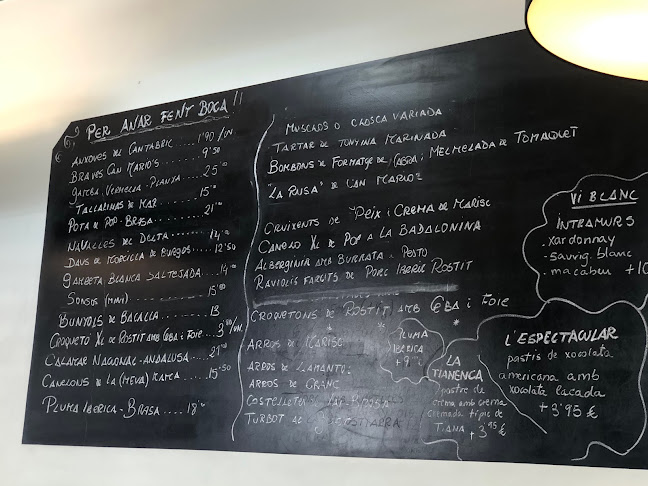 PER ANAR FENT BOCA !!
ANXOVES DEL CANTÀBRIC .... 1'90 /UN.
BRAVES CAN MARIO'S ... 9'50
GAMBA VERMELLA-PLANXA ... 25'00
TALLARINAS DE MAR ..... 15'00
POTA DE POP-BRASA ..... 21'00
NAVALLES DEL DELTA ... 14'00
DAUS DE MORCILLA DE BURGOS ... 12'50
GAMBETA BLANCA SALTEJADA ... 14'00
SONSOS (MINI) ........ 15'80
BUNYOLS DE BACALLÀ ..... 13
CROQUETÓ XL DE ROSTIT AMB CEBA I FOIE ... 3'80/UN.
CALAMAR NACIONAL-ANDALUSA ... 21'00
CANELONS DE LA (MEVA) MARCA ... 15'50
PLUMA IBÈRICA-BRASA ..... 18'00
MUSCLOS O CLOSCA VARIADA
TARTAR DE TONYINA MARINADA
BOMBONS DE FORMATGE DE CABRA I MELMELADA DE TOMAQUET
"LA RUSA" DE CAN MARIO'S
CRUIXENTS DE PEIX I CREMA DE MARISC
CANELÓ XL DE POP A LA BADALONINA
ALBERGÍNIA AMB BURRATA I PESTO
RAVIOLIS FARCITS DE PORC IBÈRIC ROSTIT
CROQUETONS DE ROSTIT AMB CEBA I FOIE
ARRÒS DE MARISC
ARRÒS DE LLAMÀNTOL
ARRÒS DE CRANC
COSTELLETES
TURBOT
PLUMA
IBÈRICA
LA
TIANENCA
postre de
crema amb crema
cremada típic de
TIANA +3'95 €
VI BLANC
INTRAMURS
. xardonnay
. sauvig. blanc
. macabeu +10
L'ESPECTACULAR
pastís de xocolata
americana amb
xocolata lacada
+3'95 €